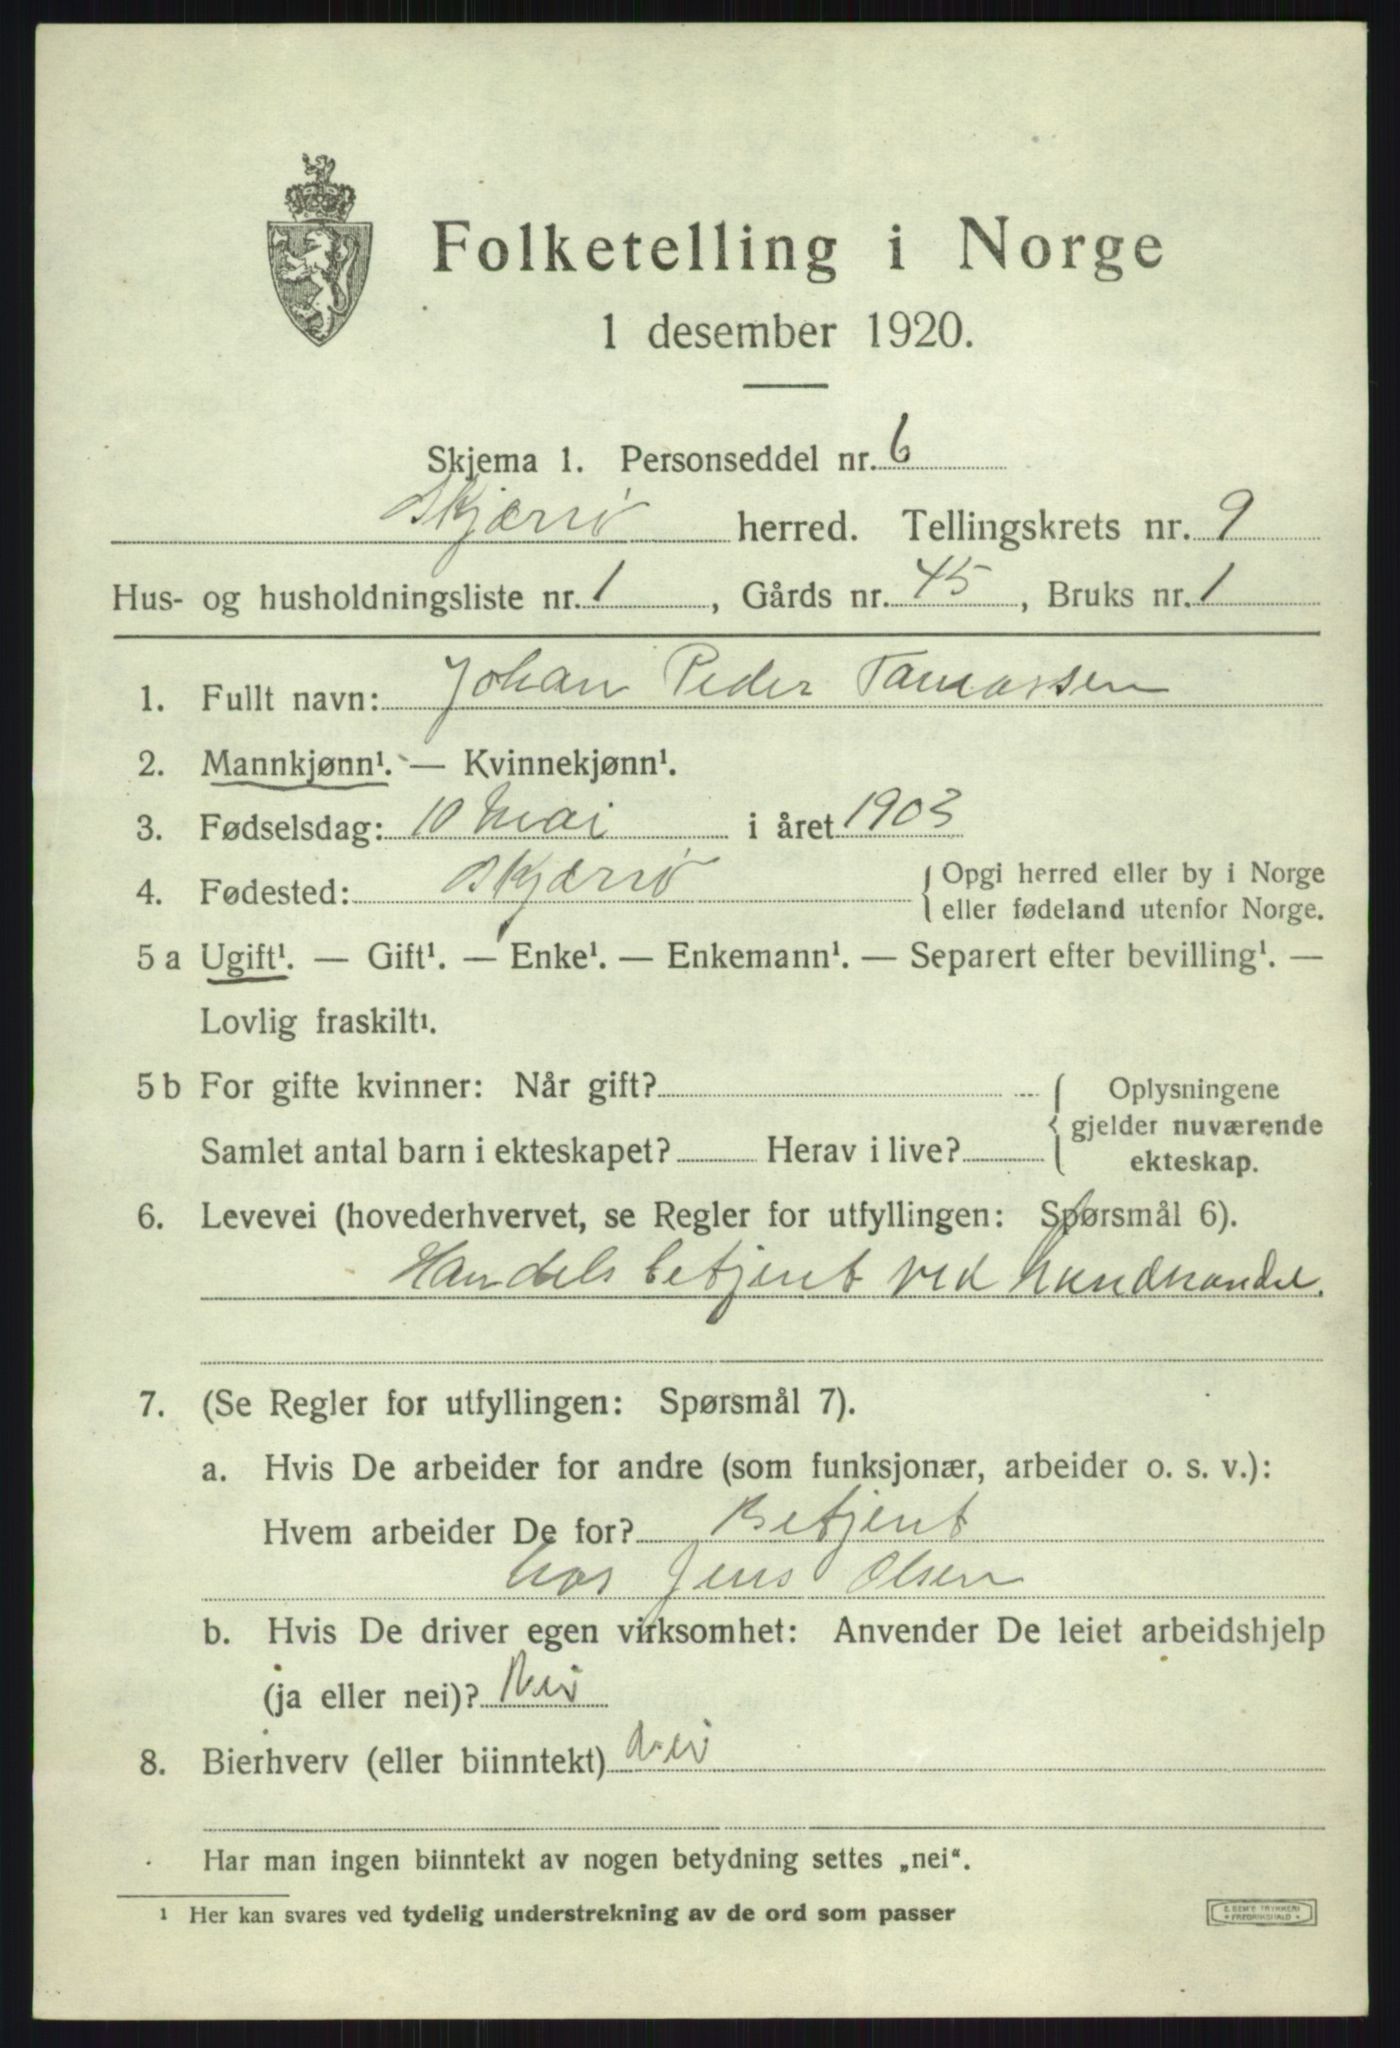 Folketelling i Norge
1 desember 1920.
Skjema 1. Personseddel nr. 6
Skjærvø herred. Tellingskrets nr. 9
Hus- og husholdningsliste nr. 1, Gårds nr. 45, Bruks nr. 1
1. Fullt navn: Johan Peder Tomassen
2. Mannkjønn¹. — Kvinnekjønn¹.
3. Fødselsdag: 10 Mai i året 1903
4. Fødested: Skjærvø { Opgi herred eller by i Norge
eller fødeland utenfor Norge.
5 a Ugift¹. — Gift¹. — Enke¹. — Enkemann¹. — Separert efter bevilling¹. —
Lovlig fraskilt¹.
5 b For gifte kvinner: Når gift? { Oplysningene
gjelder nuværende
Samlet antal barn i ekteskapet? Herav i live? ekteskap.
6. Levevei (hovederhvervet, se Regler for utfyllingen: Spørsmål 6).
Handelsbetjent ved landhandel.
7. (Se Regler for utfyllingen: Spørsmål 7).
a. Hvis De arbeider for andre (som funksjonær, arbeider o. s. v.):
Hvem arbeider De for? Betjent
hos Jens Olsen
b. Hvis De driver egen virksomhet: Anvender De leiet arbeidshjelp
(ja eller nei)? Nei
8. Bierhverv (eller biinntekt) Nei
Har man ingen biinntekt av nogen betydning settes „nei“.
¹ Her kan svares ved tydelig understrekning av de ord som passer
E. SEM'S TRYKKERI
FREDRIKSHALD